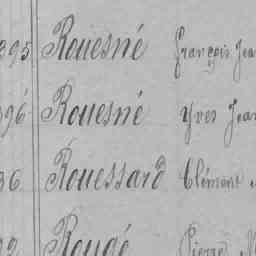 895 Rouesné François Jea
896 Rouesné Yves Jea
36 Rouessard Clément
Rougé Pierre M